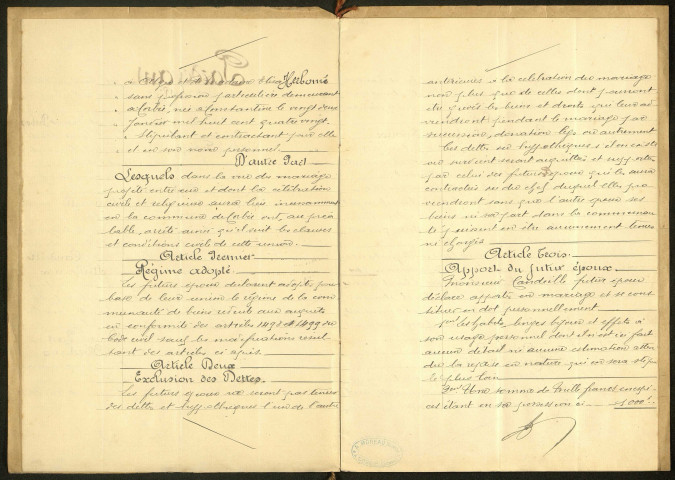 Herbomé
sans profession particulière demeurant
à Corbie, née à Constantine le vingt deux
Janvier mil huit cent quatre vingt.
Stipulant et contractant pour elle
et en son nom personnel.
D'autre Part
Lesquels dans la vue du mariage
projeté entre eux et dont la célébration
civile et religieuse aura lieu incessamment
en la commune de Corbie ont, au préa-
lable, arrêté ainsi qu'il suit les clauses
et conditions civiles de cette union.
Article Premier
Régime adopté.
Les futurs époux déclarent adopter pour
base de leur union le régime de la com-
munauté de biens réduite aux acquêts
en conformité des articles 1498 et 1499 du
Code civil sauf les modifications résul-
tant des articles ci après.
Article Deux
Exclusion des Dettes.
Les futurs époux ne seront pas tenus
des dettes et hypothèques l'un de l'autre
antérieures à la célébration du mariage
non plus que de celles dont pourront
être grevés les biens et droits qui leur ad-
viendront pendant le mariage par
succession, donation legs ou autrement
Les dettes ou hypothèques s'il en existe
ou survient seront acquittées et supportées
par celui des futurs époux qui les aura
contractées ou du chef duquel elles pro-
viendront sans que l'autre époux ses
biens ni sa part dans la communau-
té puissent en être aucunement tenus
ni chargés
Article Trois.
Apport du futur époux.
Monsieur Candeille futur époux
déclare apporter en mariage et se cons-
tituer en dot personnellement
1ent Les habits, linges bijoux et effets à
son usage personnel dont il n'est ici fait
aucun détail ni aucune estimation atten-
du la reprise en nature qui en sera stipu-
lée plus loin
2ent Une somme de Mille francs en espè-
ces étant en sa possession ci 1.000f.